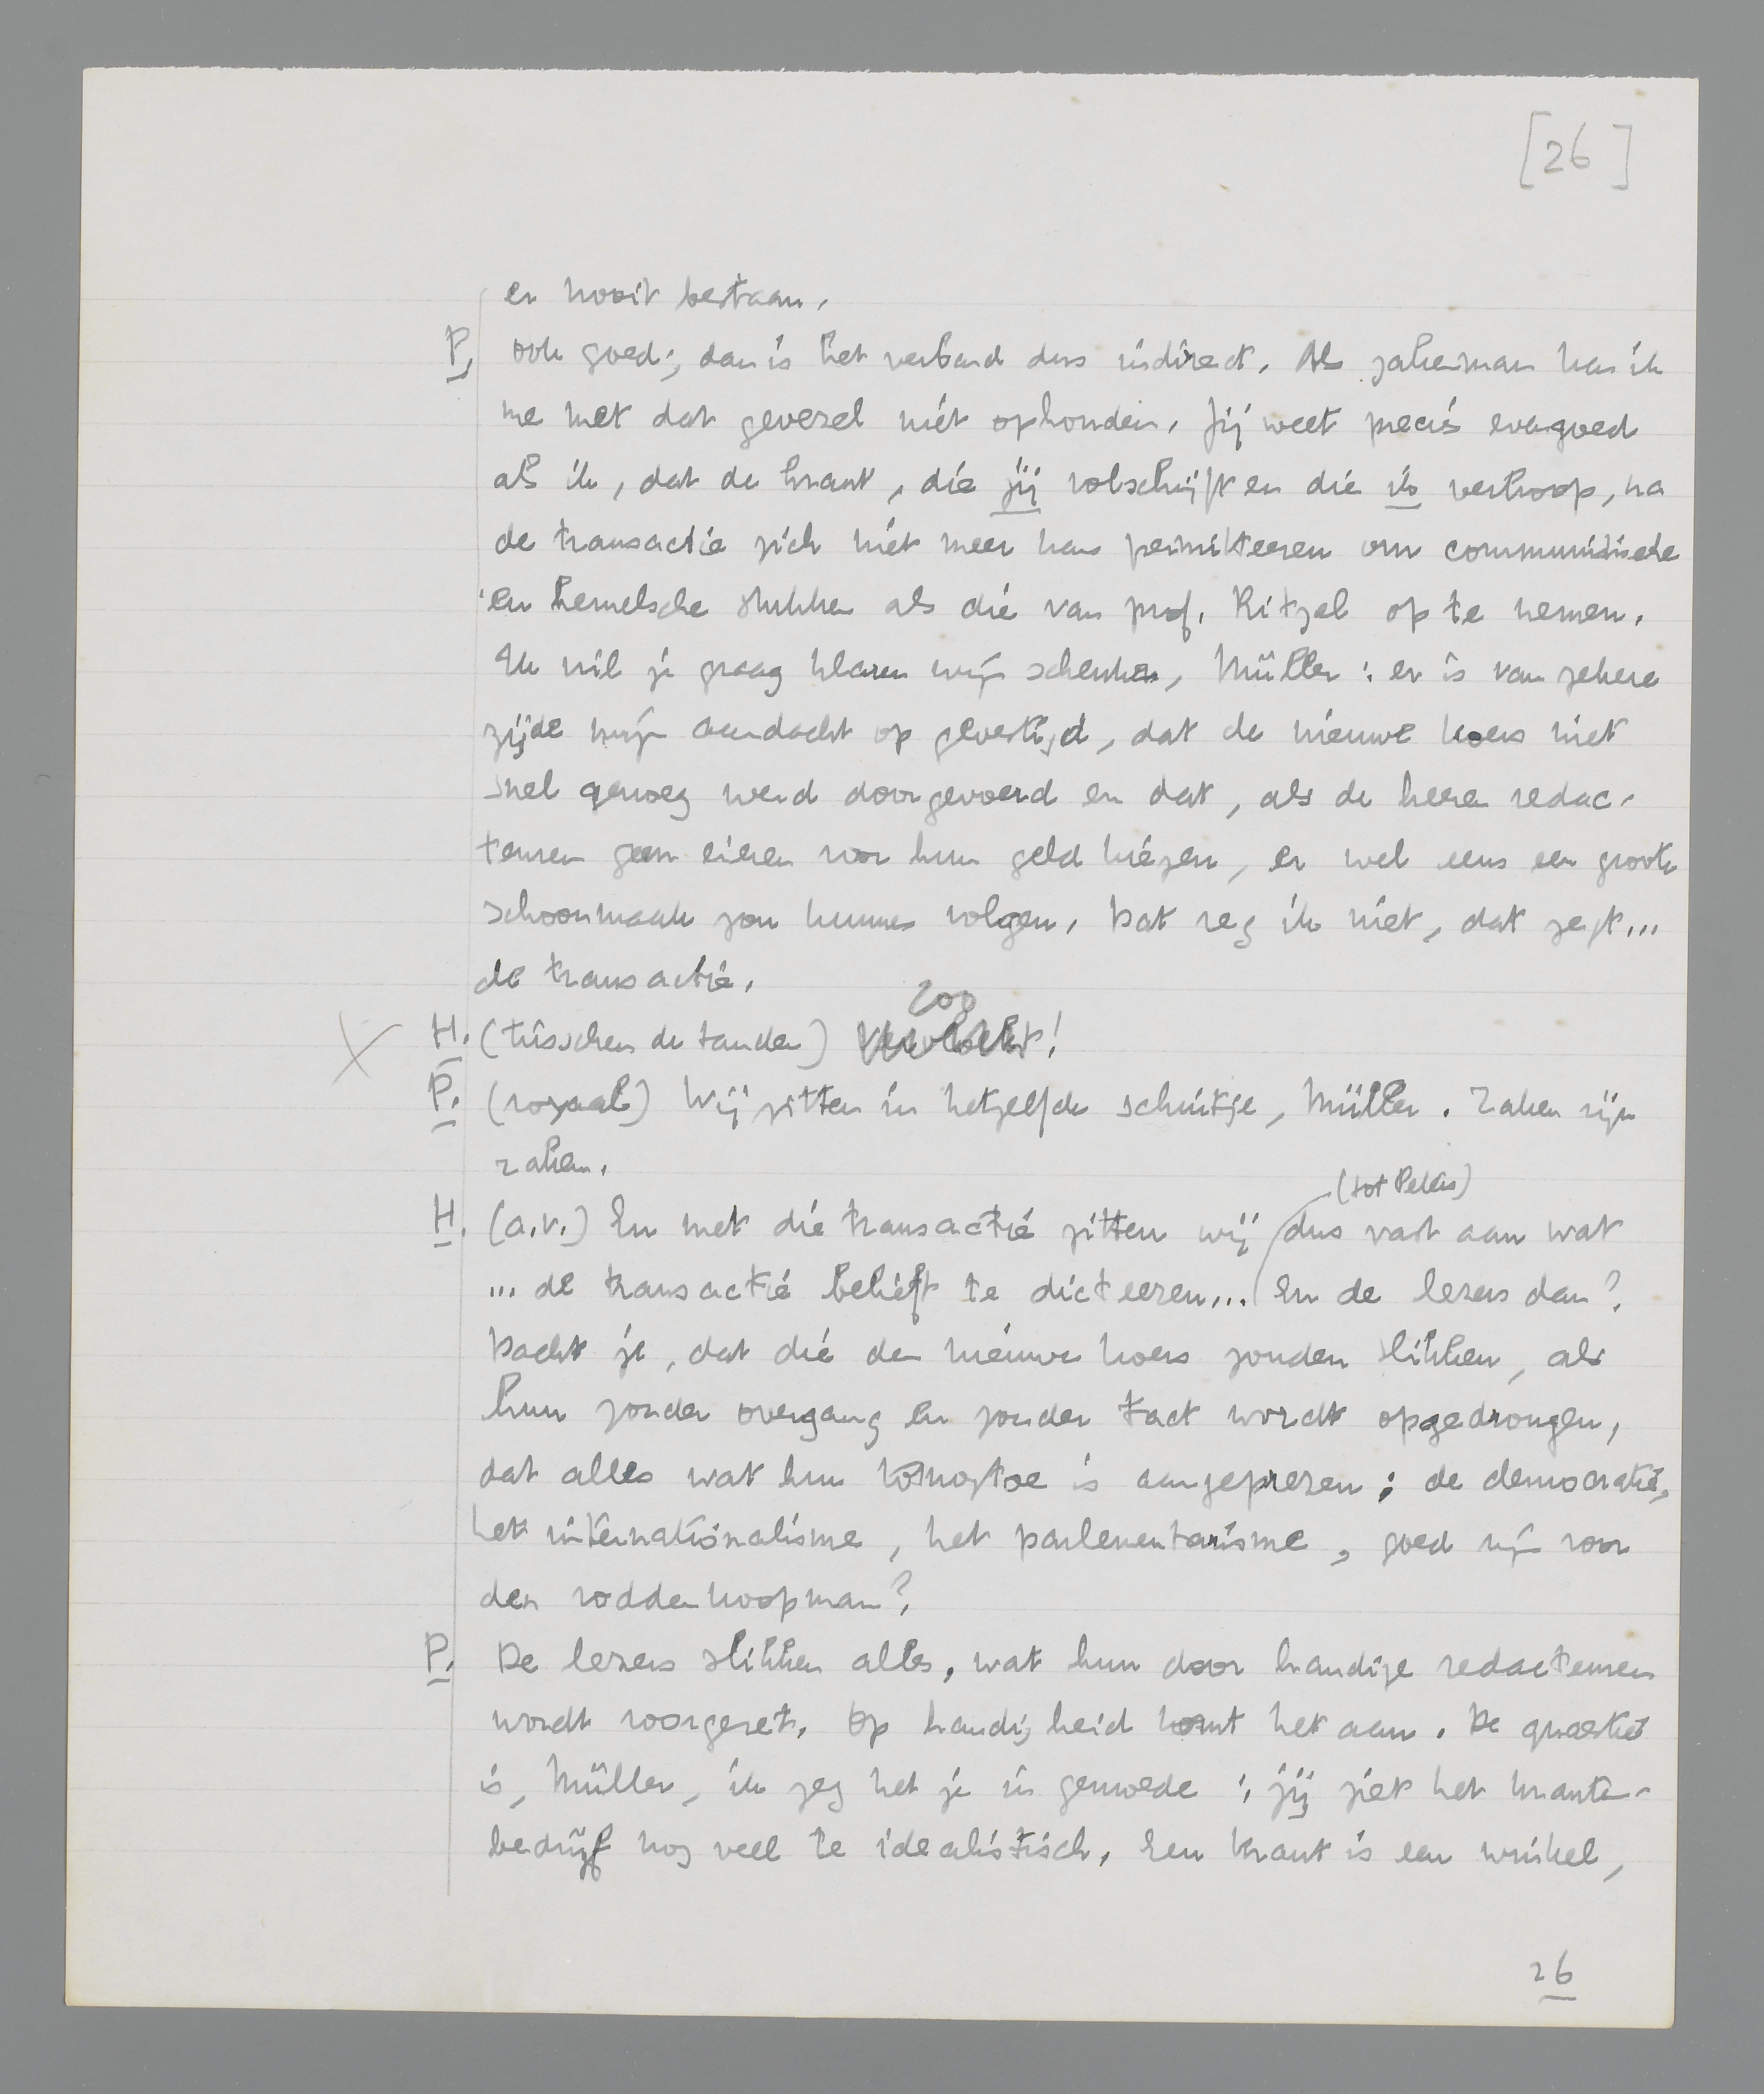 [26]
er nooit bestaan.
P. ook goed; dan is het verband dus indirect. Als zakenman kan ik
me met dat gevezel niet ophouden. Jij weet precies evengoed
als ik, dat de krant, die jij volschrijft en die ik verkoop, na
de transactie zich niet meer kan permitteeren om communistische
en hemelsche stukken als die van prof. Ritzel op te nemen.
Ik wil je graag klaren wijn schenken, Müller: er is van zekere
zijde mijn aandacht op gevestigd, dat de nieuwe koers niet
snel genoeg werd doorgevoerd en dat, als de heeren redac-
teuren geen eieren voor hun geld kiezen, er wel eens een groote
schoonmaak zou kunnen volgen. Dat zeg ik niet, dat zegt...
de transactie.
zoo
H. (tusschen de tanden) Vervloekt!
P. (royaal) Wij zitten in hetzelfde schuitje, Müller. Zaken zijn
zaken.
(tot Peters)
H. (a.v.) En met die transactie zitten wij dus vast aan wat
... de transactie belieft te dicteeren... En de lezers dan?
Dacht je, dat die den nieuwen koers zouden slikken, als
hun zonder overgang en zonder tact wordt opgedrongen,
dat alles wat hun tot nog toe is aangeprezen; de democratie,
het internationalisme, het parlementarisme, goed zijn voor
den voddenkoopman?
P. De lezers slikken alles, wat hun door handige redacteuren
wordt voorgezet. Op handigheid komt het aan. De quaestie
is, Müller, ik zeg het je in gemoede; jij ziet het kranten-
bedrijf nog veel te idealistisch. Een krant is een winkel,
26